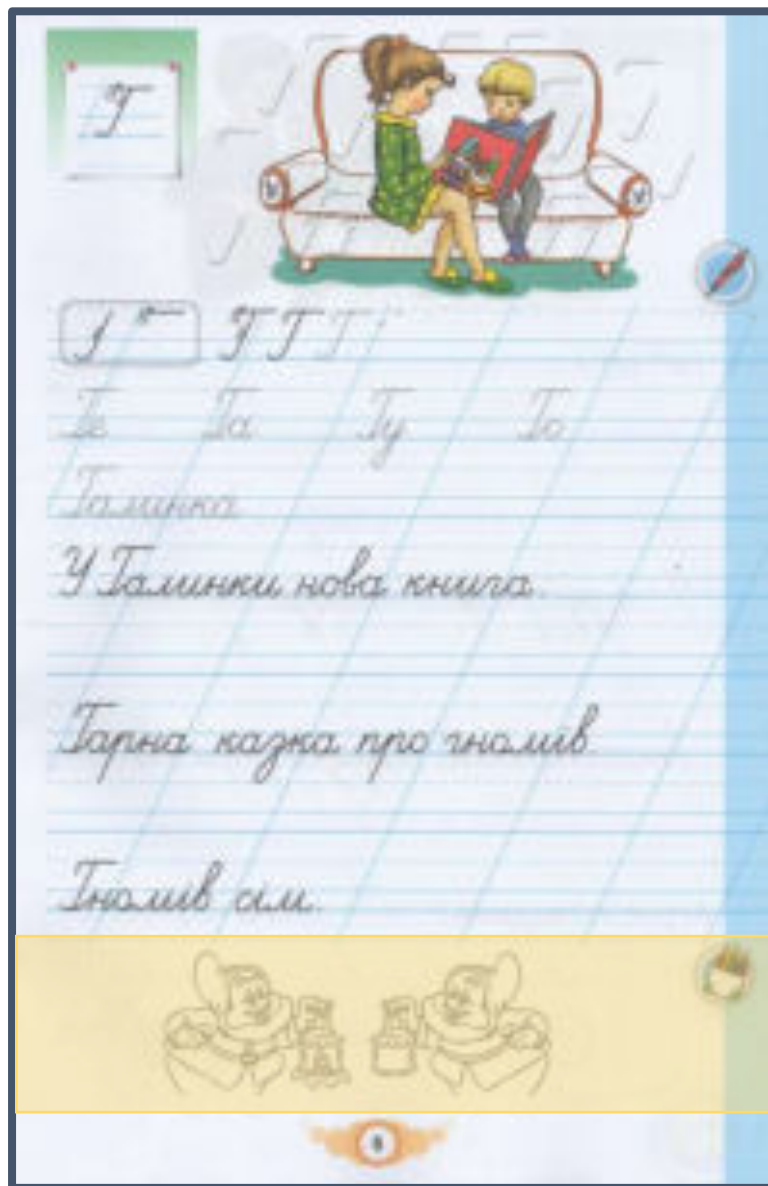 Г
Г Г Г
Гі Га Гу Го
Галинка
У Галинки нова книга.
Гарна казка про гномів.
Гномів сім.